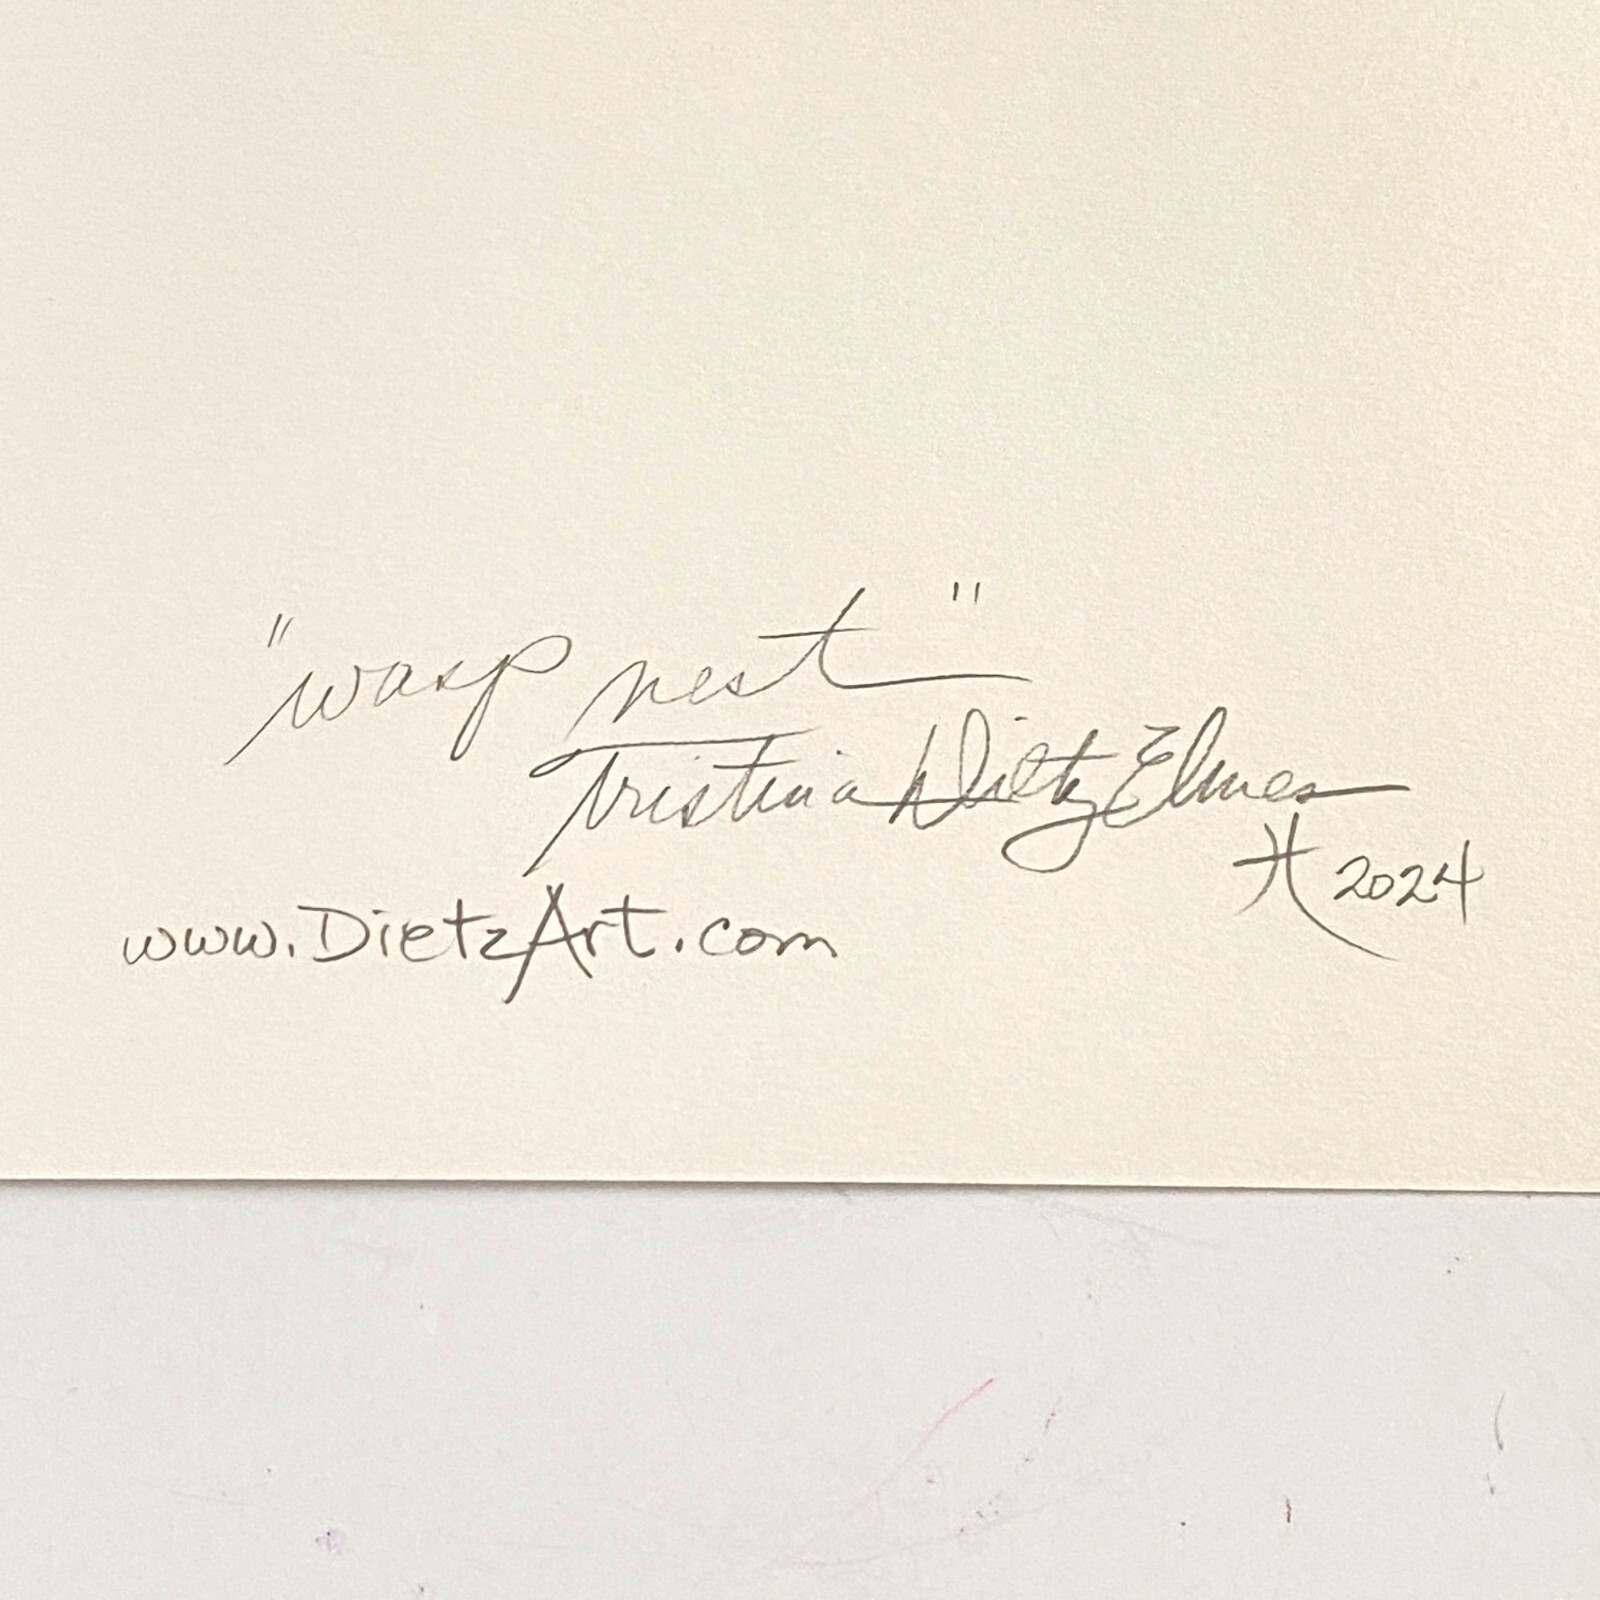 "wasp nest"
Tristina Dietz Elmes
2024
www.DietzArt.com